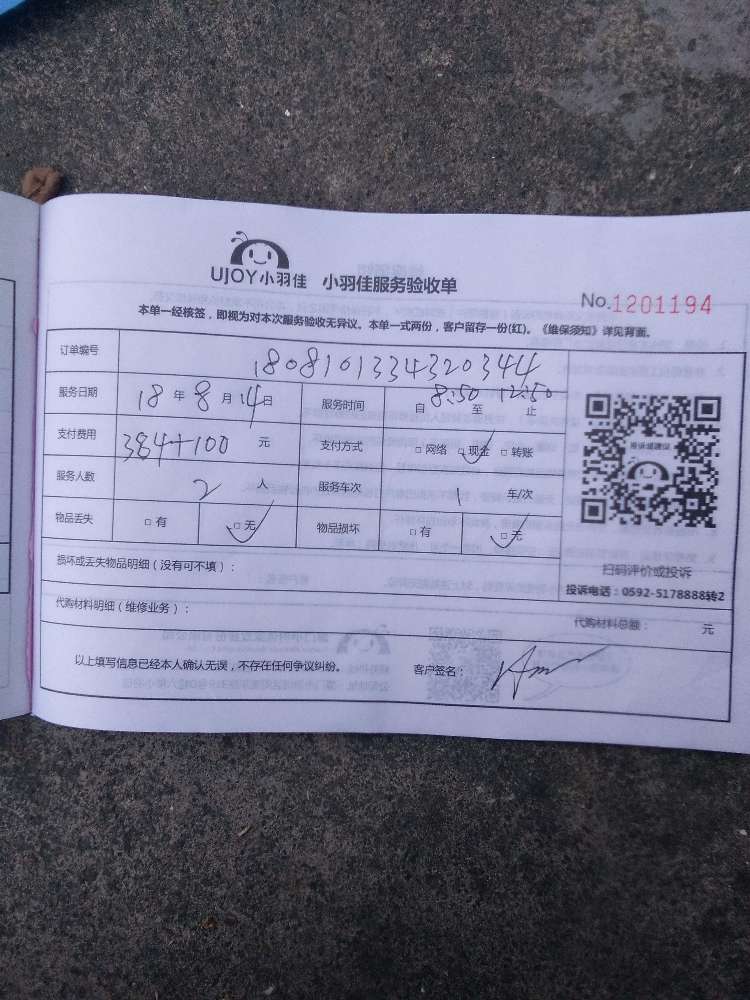 UJOY小羽佳 小羽佳服务验收单
No.1201194
本单一经核签，即视为对本次服务验收无异议。本单一式两份，客户留存一份(红)。《维保须知》详见背面。
订单编号 180810133432034４
服务日期 18 年 8 月 14 日 服务时间 自 8:50 至 12:50 止
支付费用 384+100 元 支付方式 □ 网络 □ 现金 □ 转账
服务人数 2 人 服务车次 1 车/次
物品丢失 □ 有 □ 无 物品损坏 □ 有 □ 无
损坏或丢失物品明细（没有可不填）：
扫码评价或投诉
投诉电话：0592-5178888转2
代购材料明细（维修业务）： 代购材料总额： 元
以上填写信息已经本人确认无误，不存在任何争议纠纷。 客户签名：